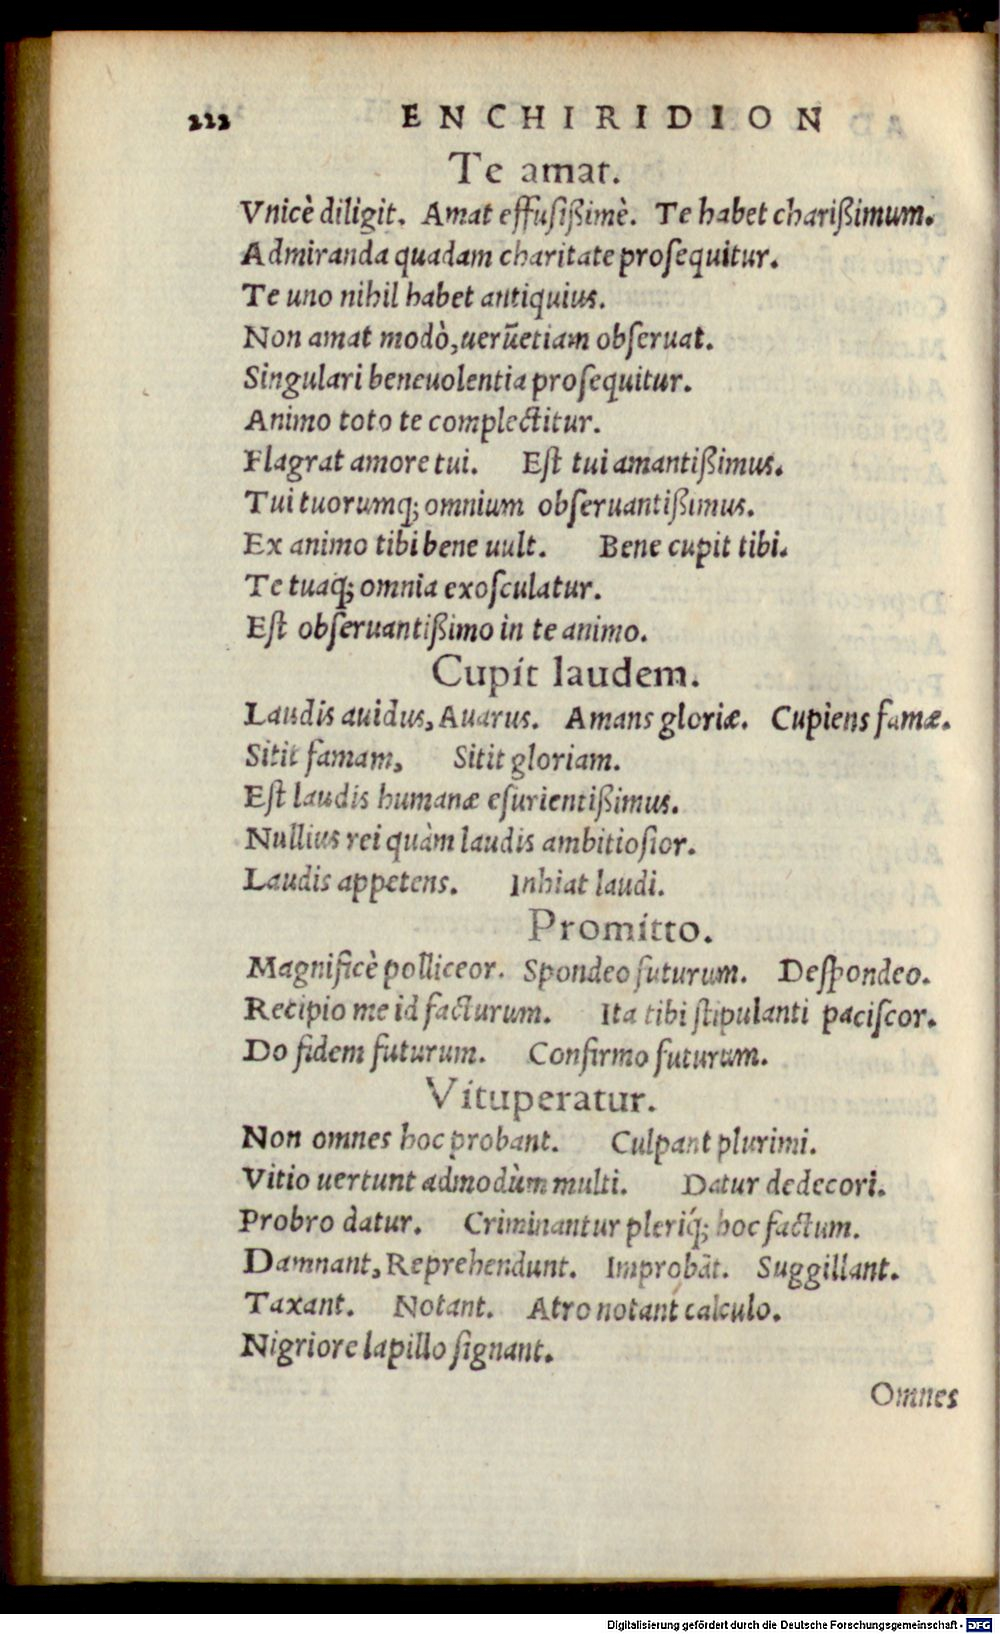 222 ENCHIRIDION
Te amat.
Vnicè diligit. Amat effuſiſsimè. Te habet chariſsimum.
Admiranda quadam charitate proſequitur.
Te uno nihil habet antiquius.
Non amat modò, uerūetiam obſeruat.
Singulari beneuolentia proſequitur.
Animo toto te complectitur.
Flagrat amore tui. Eſt tui amantiſsimus.
Tui tuorumq; omnium obſeruantiſsimus.
Ex animo tibi bene uult. Bene cupit tibi.
Te tuaq; omnia exoſculatur.
Eſt obſeruantiſsimo in te animo.
Cupit laudem.
Laudis auidus, Auarus. Amans gloriæ. Cupiens famæ.
Sitit famam, Sitit gloriam.
Eſt laudis humanæ eſurientiſsimus.
Nullius rei quàm laudis ambitioſior.
Laudis appetens. Inhiat laudi.
Promitto.
Magnificè polliceor. Spondeo futurum. Deſpondeo.
Recipio me id facturum. Ita tibi ſtipulanti paciſcor.
Do fidem futurum. Confirmo futurum.
Vituperatur.
Non omnes hoc probant. Culpant plurimi.
Vitio uertunt admodùm multi. Datur dedecori.
Probro datur. Criminantur pleriq́; hoc factum.
Damnant, Reprehendunt. Improbāt. Suggillant.
Taxant. Notant. Atro notant calculo.
Nigriore lapillo ſignant.
Omnes
Digitalisierung gefördert durch die Deutsche Forschungsgemeinschaft - DFG